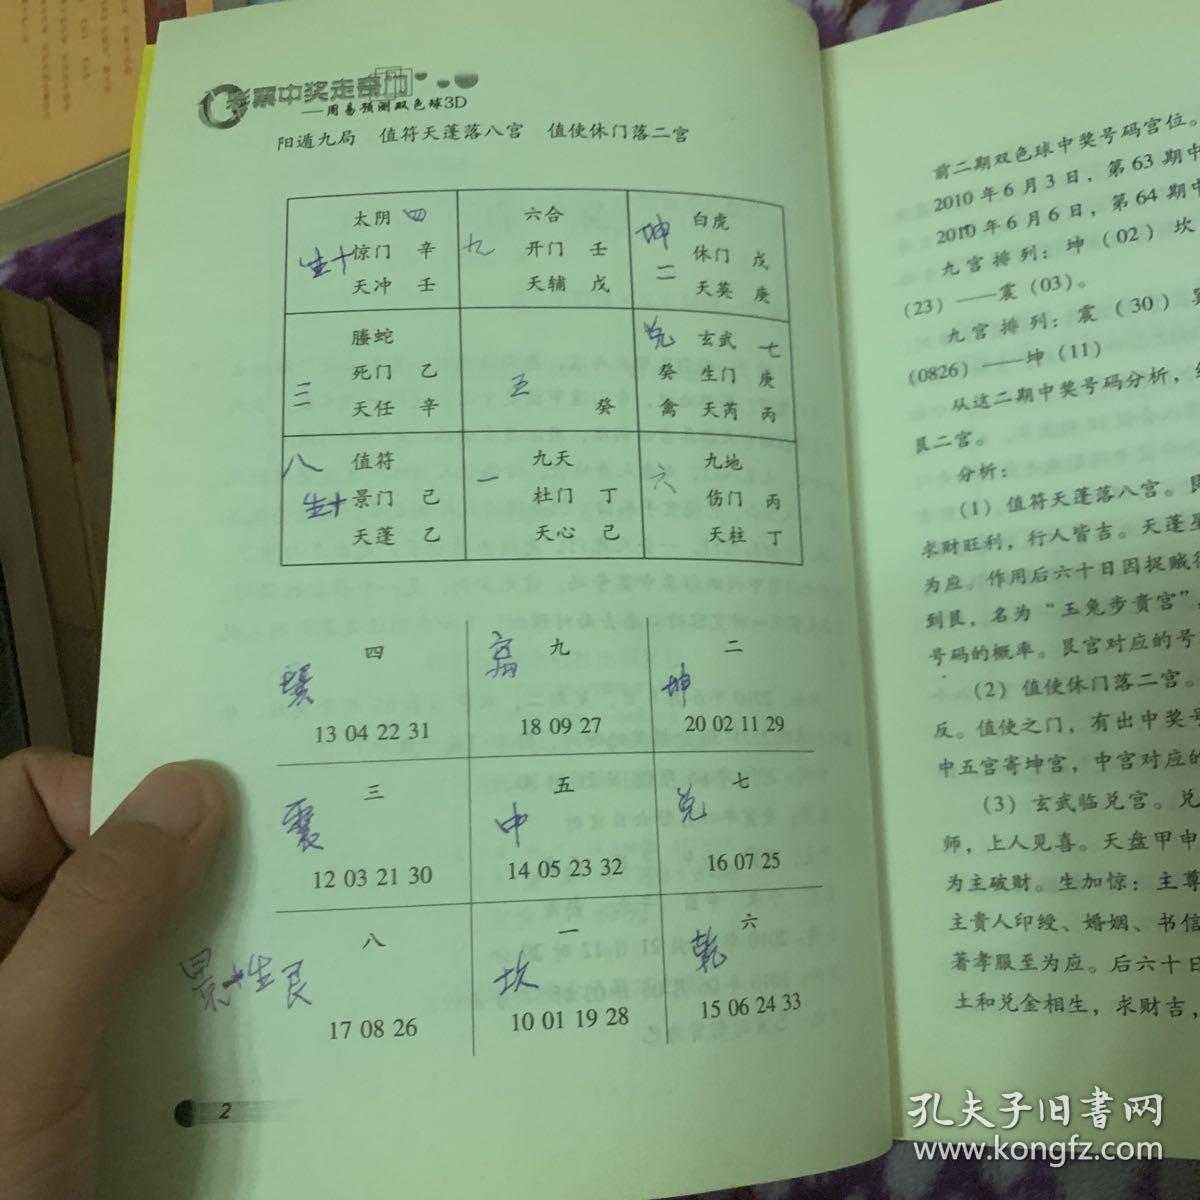 彩票中奖走奇门
——周易预测双色球3D
阳遁九局 值符天蓬落八宫 值使休门落二宫
太阴 四
生+ 惊门 辛
天冲 壬
六合
九 开门 壬
天辅 戊
坤 白虎
二 休门 戊
天英 庚
螣蛇
三 死门 乙
天任 辛
五
癸
兑 玄武 七
癸 生门 庚
禽 天芮 丙
八 值符
生+ 景门 己
天蓬 乙
九天
一 杜门 丁
天心 己
九地
六 伤门 丙
天柱 丁
四
巽
13 04 22 31
九
离
18 09 27
二
坤
20 02 11 29
三
震
12 03 21 30
五
中
14 05 23 32
七
兑
16 07 25
八
景+生 艮
17 08 26
一
坎
10 01 19 28
六
乾
15 06 24 33
2
前二期双色球中奖号码宫位。
2010年6月3日，第63期中
2010年6月6日，第64期中
九宫排列：坤（02）坎
（23）——震（03）。
九宫排列：震（30）巽
（0826）——坤（11）
从这二期中奖号码分析，
艮二宫。
分析：
（1）值符天蓬落八宫。
求财旺利，行人皆吉。天蓬
为应。作用后六十日因捉贼
到艮，名为“玉兔步贵宫”，
号码的概率。艮宫对应的号
（2）值使休门落二宫。
反。值使之门，有出中奖号
中五宫寄坤宫，中宫对应的
（3）玄武临兑宫。兑
师，上人见喜。天盘甲申
为主破财。生加惊：主尊
主贵人印绶、婚姻、书信
著孝服至为应。后六十日
土和兑金相生，求财吉，
孔夫子旧书网
www.kongfz.com